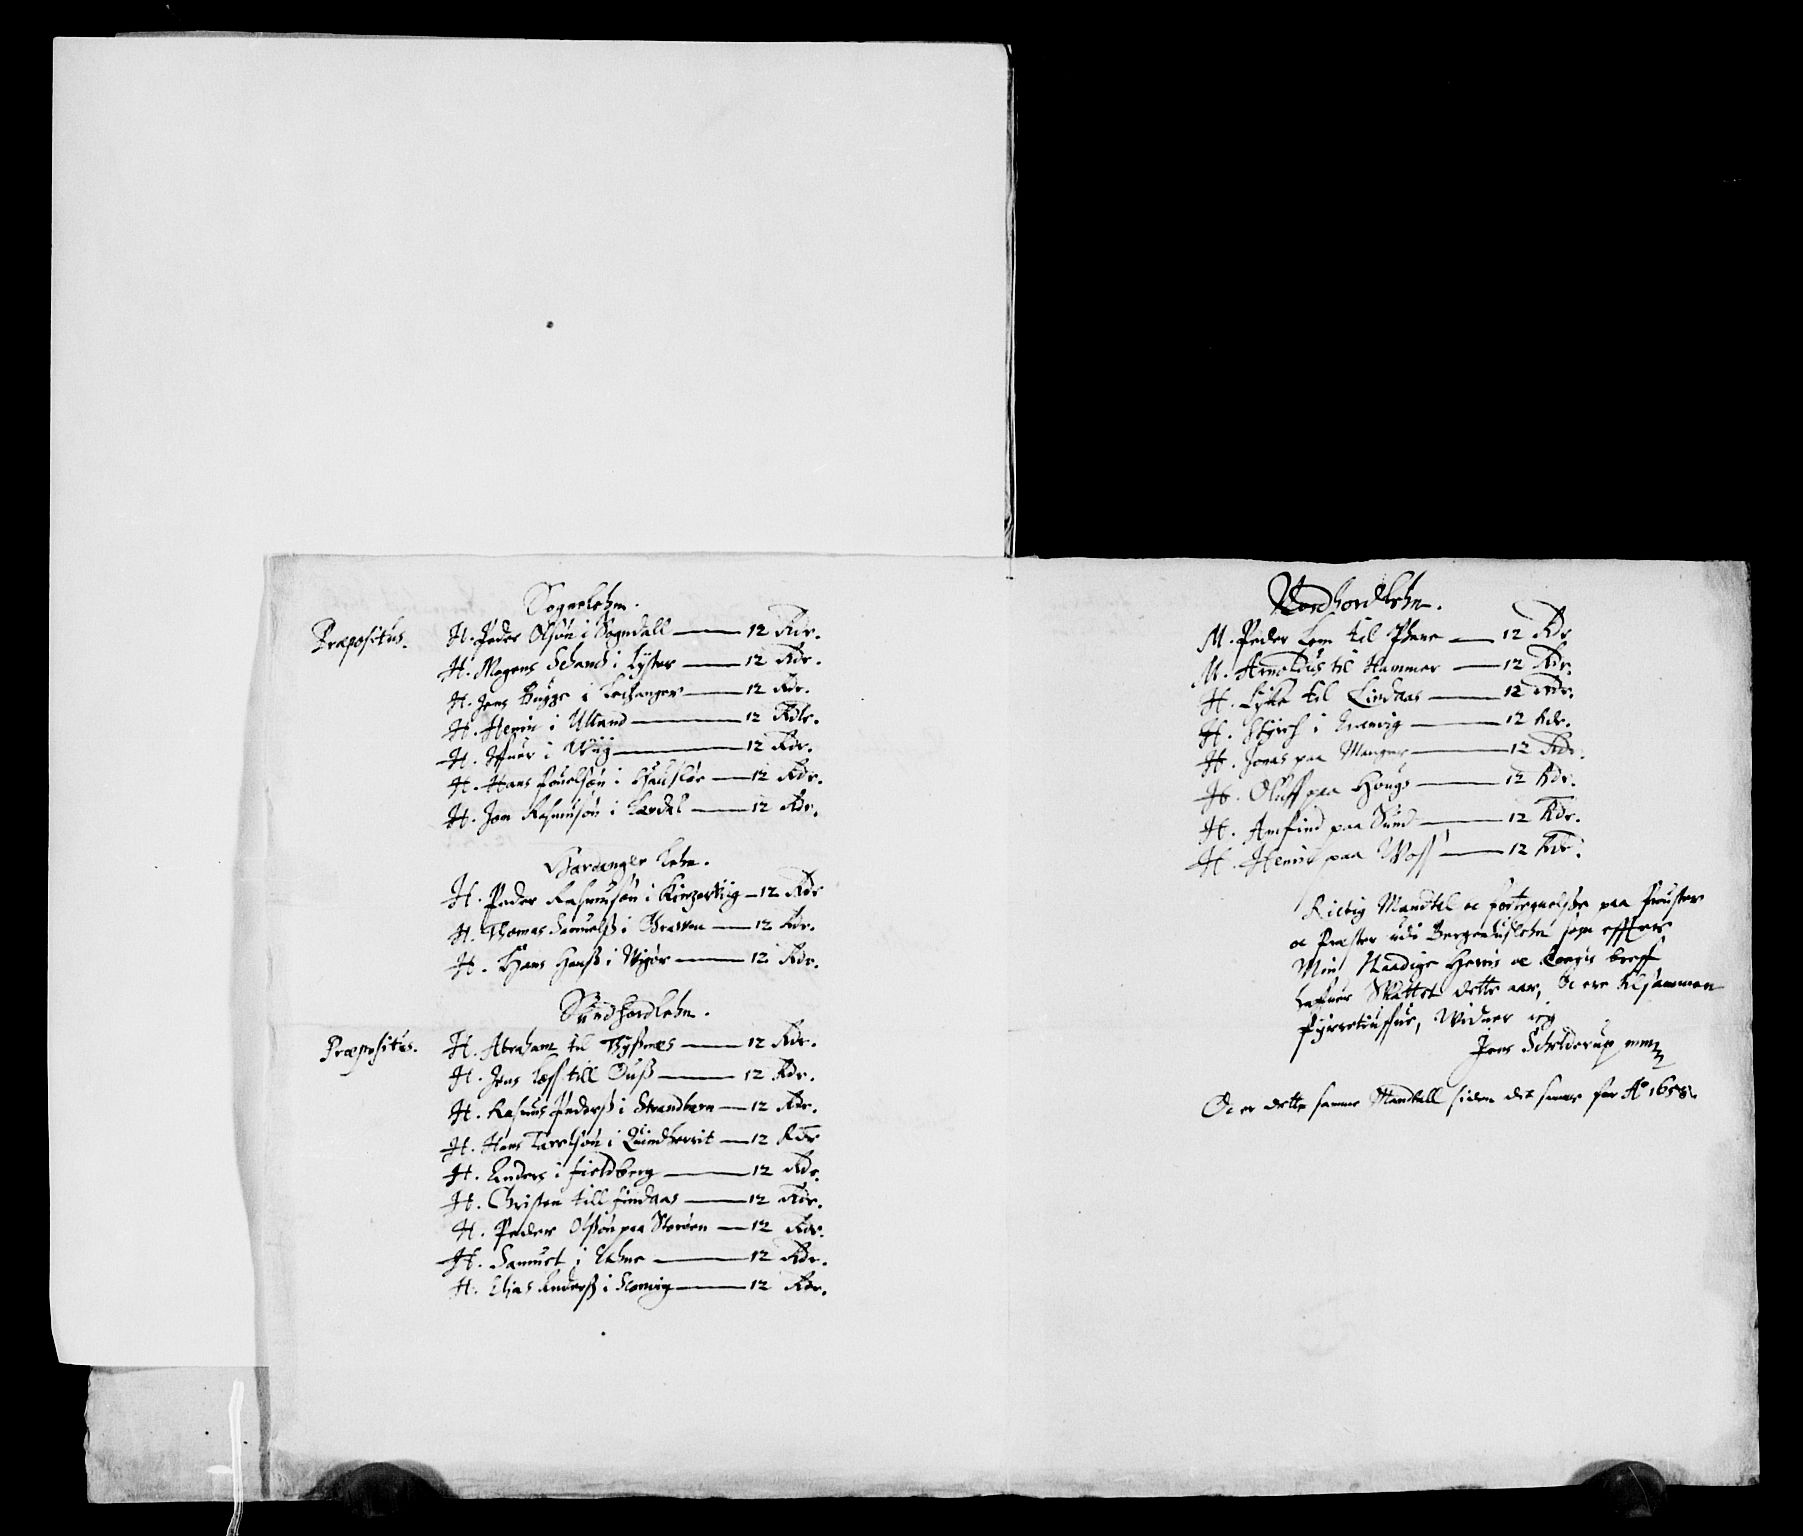 Sognelehn.
Præpositus. H. Peder Olsøn i Sogndall 12 Rdr.
H. Mogens Schanch i Lyster 12 Rdr.
H. Jens Bugge i Lechanger 12 Rdr.
H. Henric i Uland 12 Rdlr.
H. i Wiig 12 Rdr.
H. Hans Pouelsøn i Hausløe 12 Rdr.
H. Jon Rasmusøn i Lærdal 12 Rdr.
Hardanger Lehn.
H. Peder Rasmusøn i Kinzerviig 12 Rdr
H. Thomas Samuelß i Graffven 12 Rdr.
H. Hans Hanß i Wigør 12 Rdr.
Sundhordlehn.
Præpositus. H. Abraham til Tyssnes 12 Rdr.
H. Jens till Ouß 12 Rdr.
H. Rasmus Pederß i Strandbarn 12 Rdr.
H. Hans Carelsøn i Quindherrit 12 Rdr
H. Anders i Fieldberg 12 Rdr.
H. Christen till Findaas 12 Rdr.
H. Peder Olsson paa Storøen 12 Rdr.
H. Samuel i Ethne 12 Rdr.
H. Elias Anderß i Schonevig 12 Rdr.
Nordhordlehn.
M. Peder Lem til Phane 12 Rdr
M. Arnoldus til Hammer 12 Rdr.
H. Lyke til Lindaas 12 Rdr.
H. i Evenvig 12 Rdr.
H. Jonas paa Manger 12 Rdr.
H. Oluff paa Hougs 12 Rdr.
H. Amfind paa Sund 12 Rdr.
H. Henric paa Woss 12 Rdr.
Rictig Mandtal oc fortegnelse paa Prouster
oc Præster udi Bergenhuslehn som effter
Min Naadige Herris oc Kongis breff
hafuer Skattet dette aar, Oc ere tilsammen
Fyrretiuffue, Widner ieg
Jens Schelderup mmm
Oc er dette samme Mandtall siden det samme for Aº 1658.